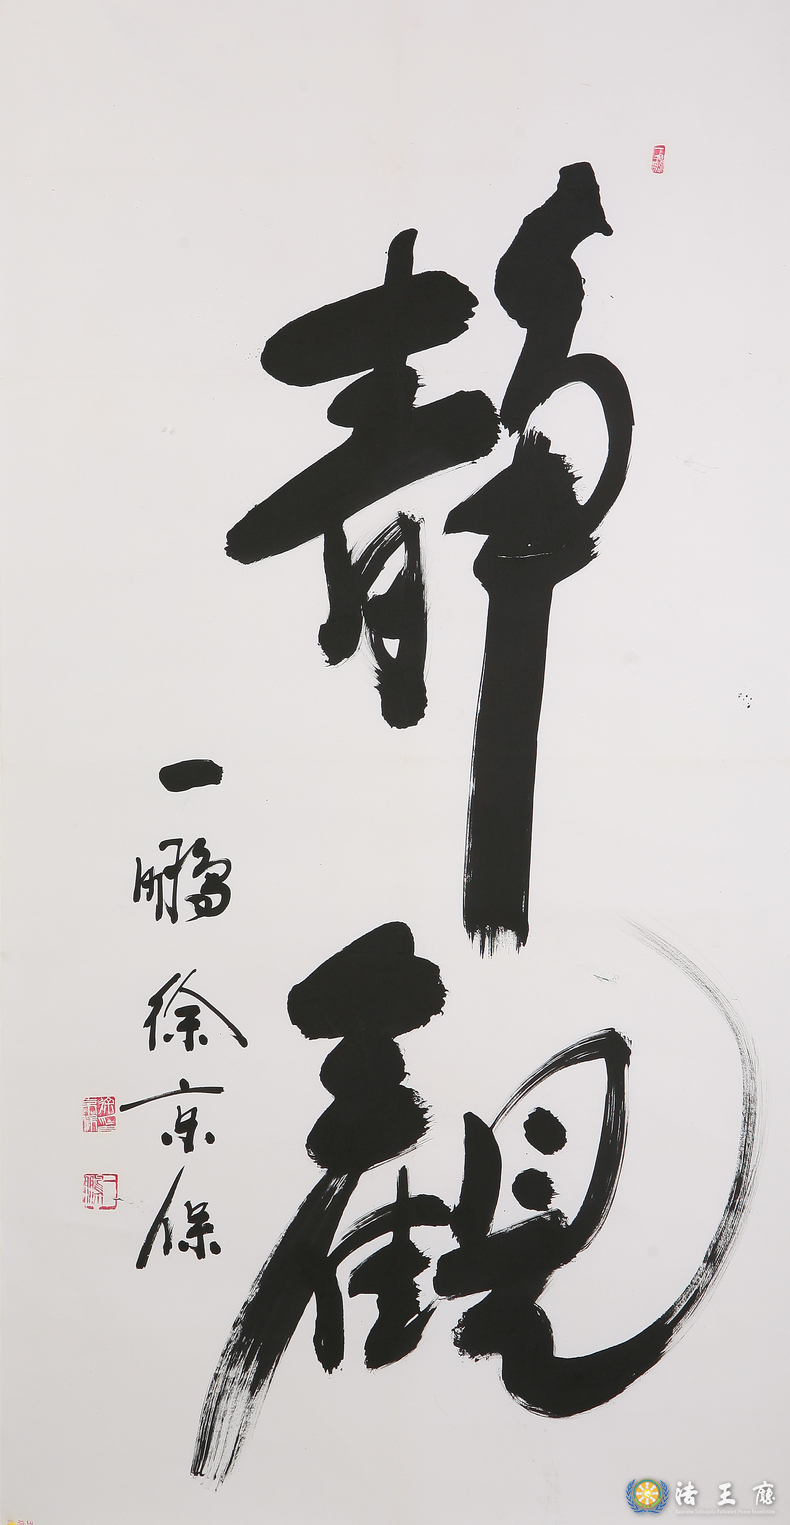 靜觀
一鵬 徐京保
法王廳